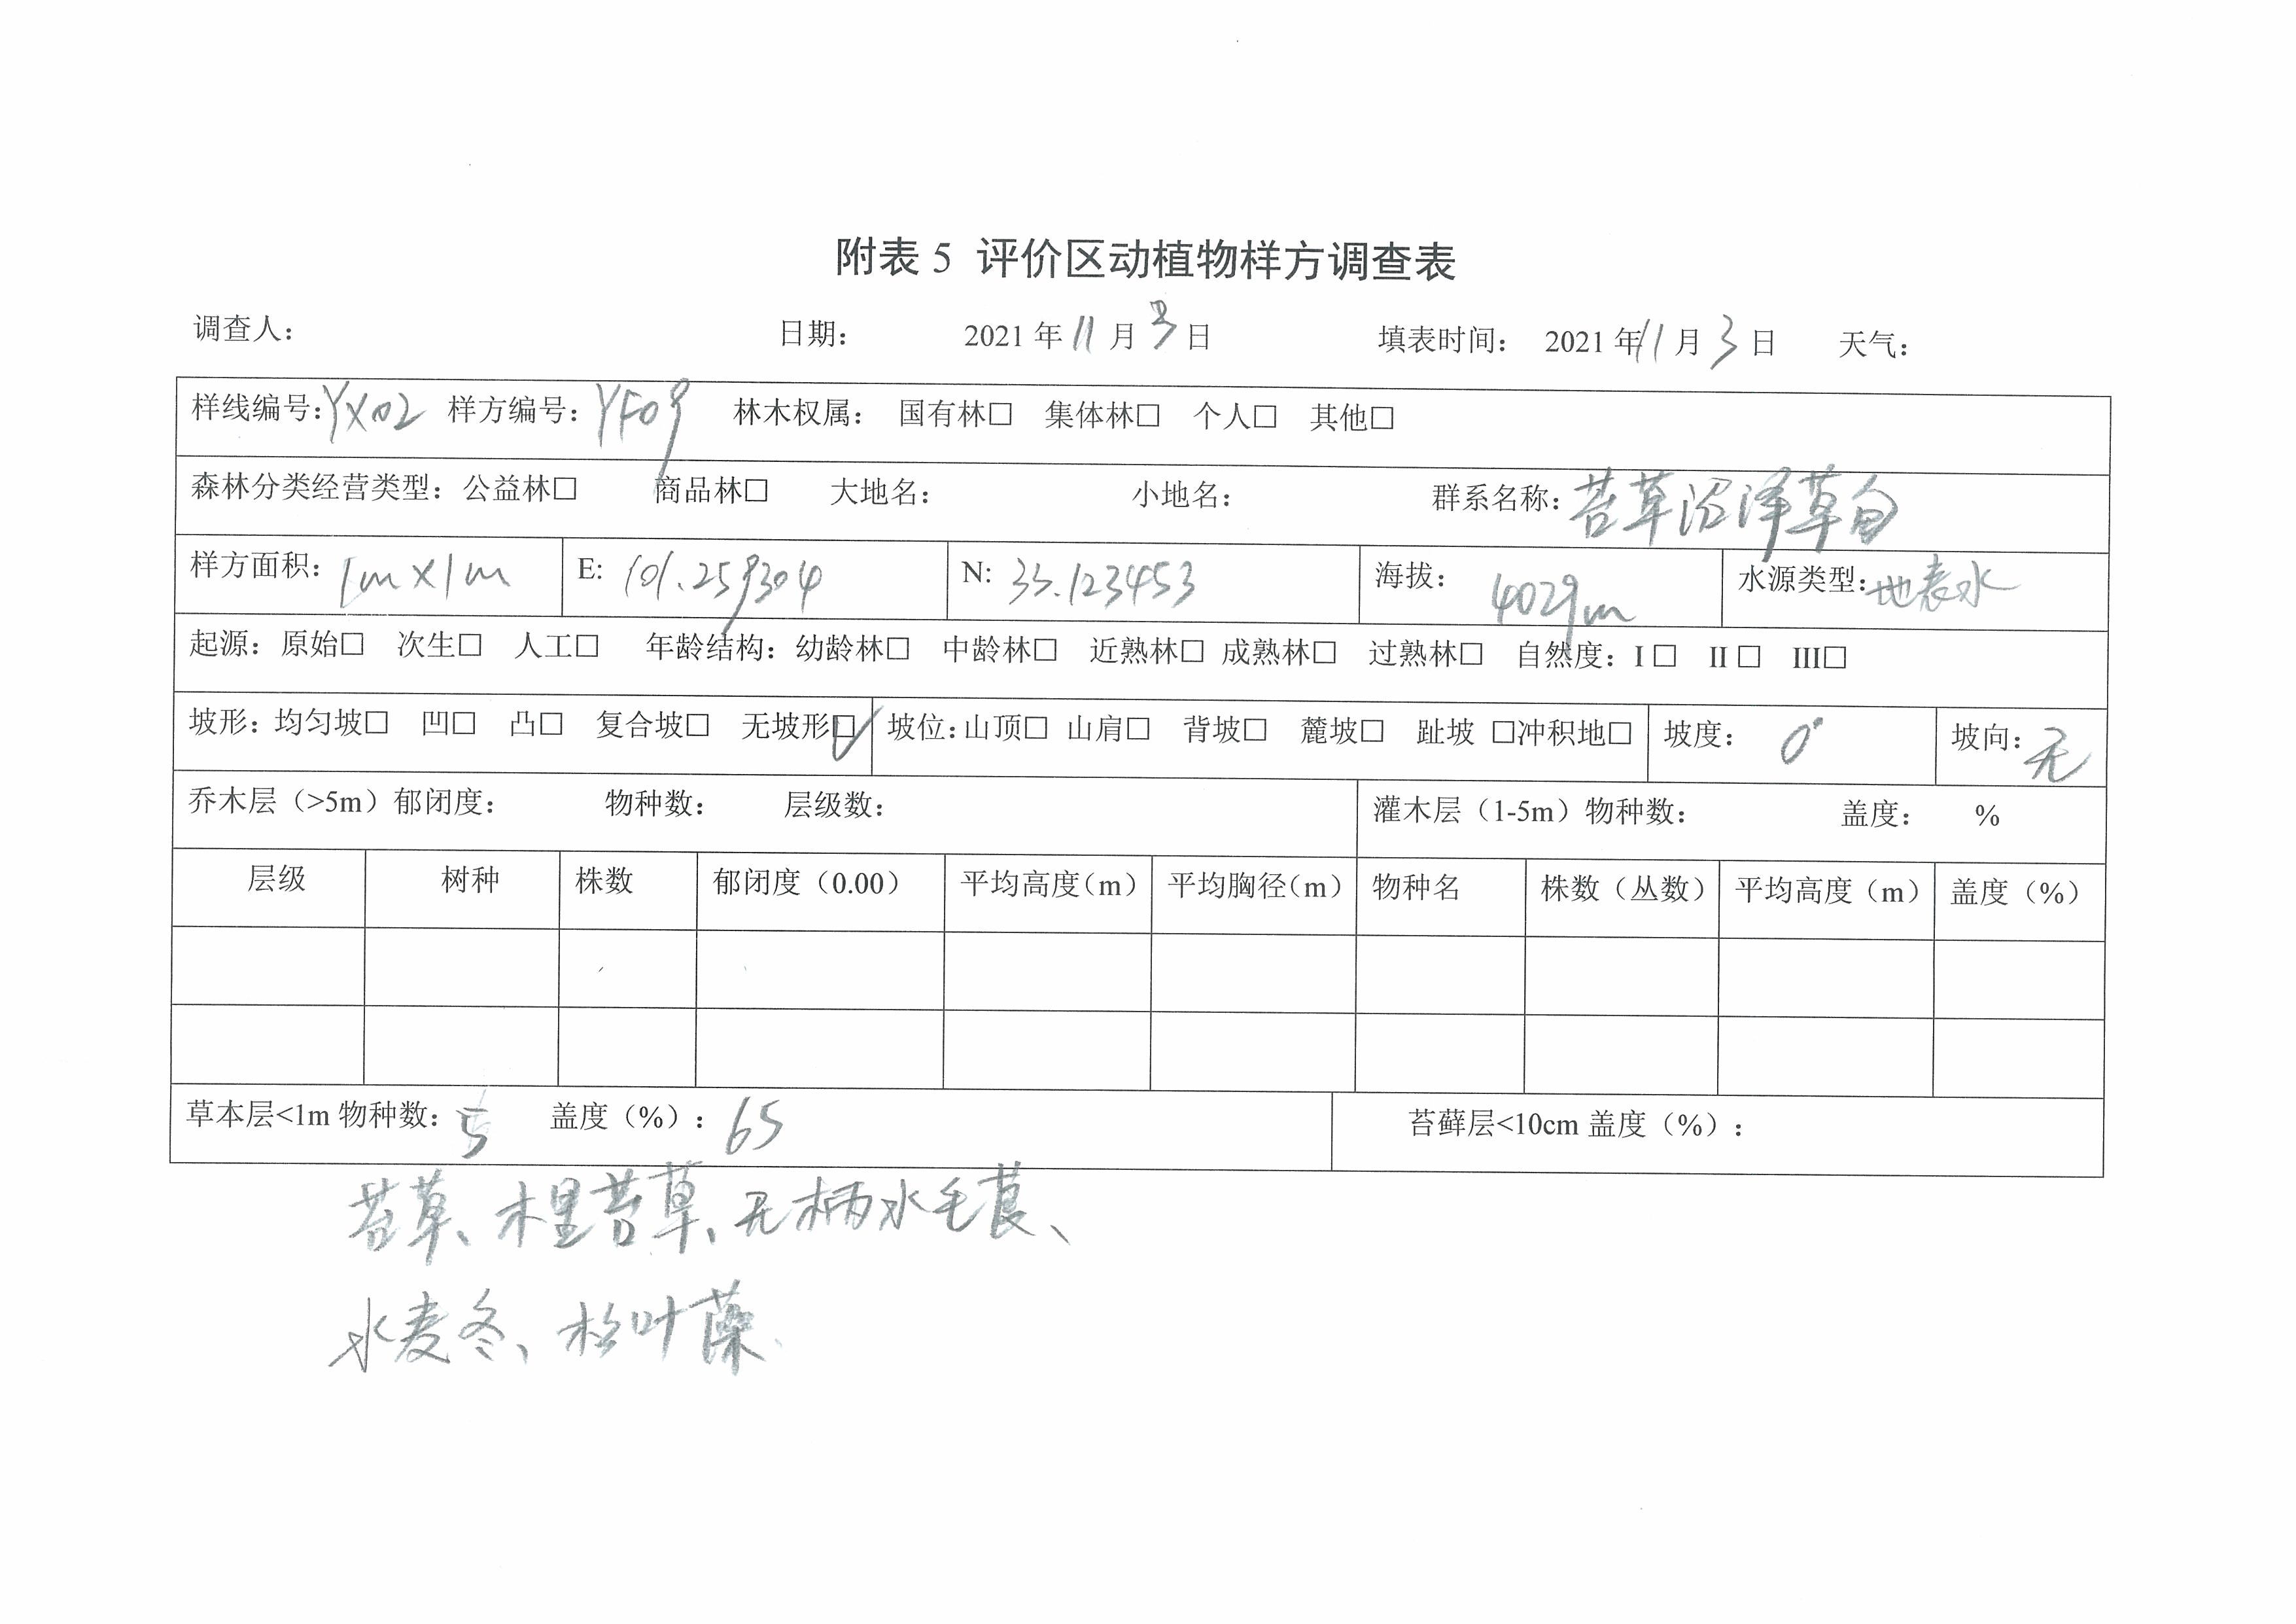 附表 5 评价区动植物样方调查表
调查人： 日期： 2021 年 11 月 3 日 填表时间： 2021 年 11 月 3 日 天气：
样线编号：YX02 样方编号：YF09 林木权属： 国有林□ 集体林□ 个人□ 其他□
森林分类经营类型：公益林□ 商品林□ 大地名： 小地名： 群系名称：苔草沼泽草甸
样方面积：1m×1m E: 101.259304 N: 33.123453 海拔： 4029m 水源类型：地表水
起源：原始□ 次生□ 人工□ 年龄结构：幼龄林□ 中龄林□ 近熟林□ 成熟林□ 过熟林□ 自然度：I □ II □ III□
坡形：均匀坡□ 凹□ 凸□ 复合坡□ 无坡形☑ 坡位：山顶□ 山肩□ 背坡□ 麓坡□ 趾坡 □冲积地□ 坡度： 0° 坡向：无
乔木层（>5m）郁闭度： 物种数： 层级数： 灌木层（1-5m）物种数： 盖度： %
层级 树种 株数 郁闭度（0.00） 平均高度（m） 平均胸径（m） 物种名 株数（丛数） 平均高度（m） 盖度（%）
草本层<1m 物种数：5 盖度（%）：65 苔藓层<10cm 盖度（%）：
苔草、木里苔草、无柄水毛茛、
水麦冬、松叶藻